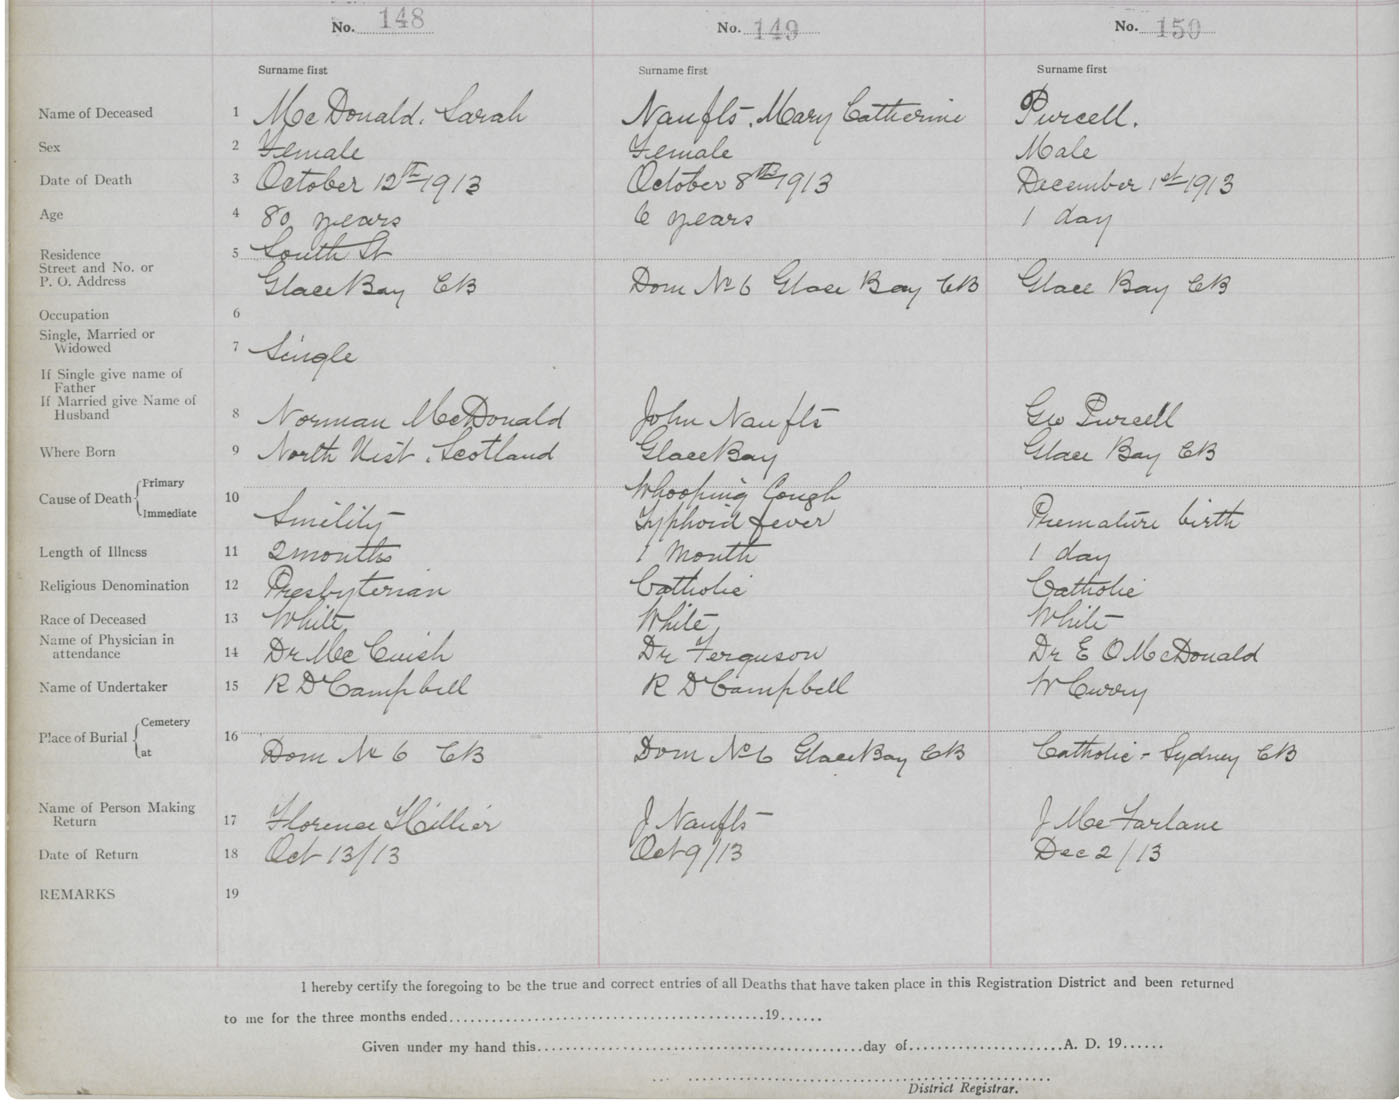 No. 148 No. 149 No. 150
Surname first Surname first Surname first
Name of Deceased 1 McDonald, Sarah Naufts, Mary Catherine Purcell.
Sex 2 Female Female Male
Date of Death 3 October 12th 1913 October 8th 1913 December 1st 1913
Age 4 80 years 6 years 1 day
Residence 5 South St
Street and No. or
P. O. Address Glace Bay CB Dom No 6 Glace Bay CB Glace Bay CB
Occupation 6
Single, Married or
Widowed 7 Single
If Single give name of
Father
If Married give Name of
Husband 8 Norman McDonald John Naufts Geo Purcell
Where Born 9 North Uist, Scotland Glace Bay Glace Bay CB
Primary Whooping Cough
Cause of Death 10
Immediate Senility Typhoid fever Premature birth
Length of Illness 11 2 months 1 Month 1 day
Religious Denomination 12 Presbyterian Catholic Catholic
Race of Deceased 13 White White White
Name of Physician in
attendance 14 Dr McCuish Dr Ferguson Dr E O McDonald
Name of Undertaker 15 R D Campbell R D Campbell W Curry
Cemetery
Place of Burial 16
at Dom No 6 CB Dom No 6 Glace Bay CB Catholic - Sydney CB
Name of Person Making
Return 17 Florence Hillier J Naufts J McFarlane
Date of Return 18 Oct 13/13 Oct 9/13 Dec 2/13
REMARKS 19
I hereby certify the foregoing to be the true and correct entries of all Deaths that have taken place in this Registration District and been returned
to me for the three months ended 19
Given under my hand this day of A. D. 19
District Registrar.